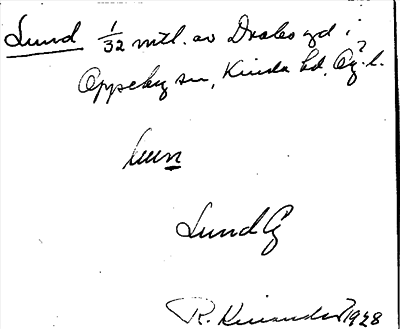 Lund 1/32 mtl. av Drabs gd i
Oppeby sn, Kinda hd, Ög. l.
lunn
Lund Ög
R. Kinander 1928